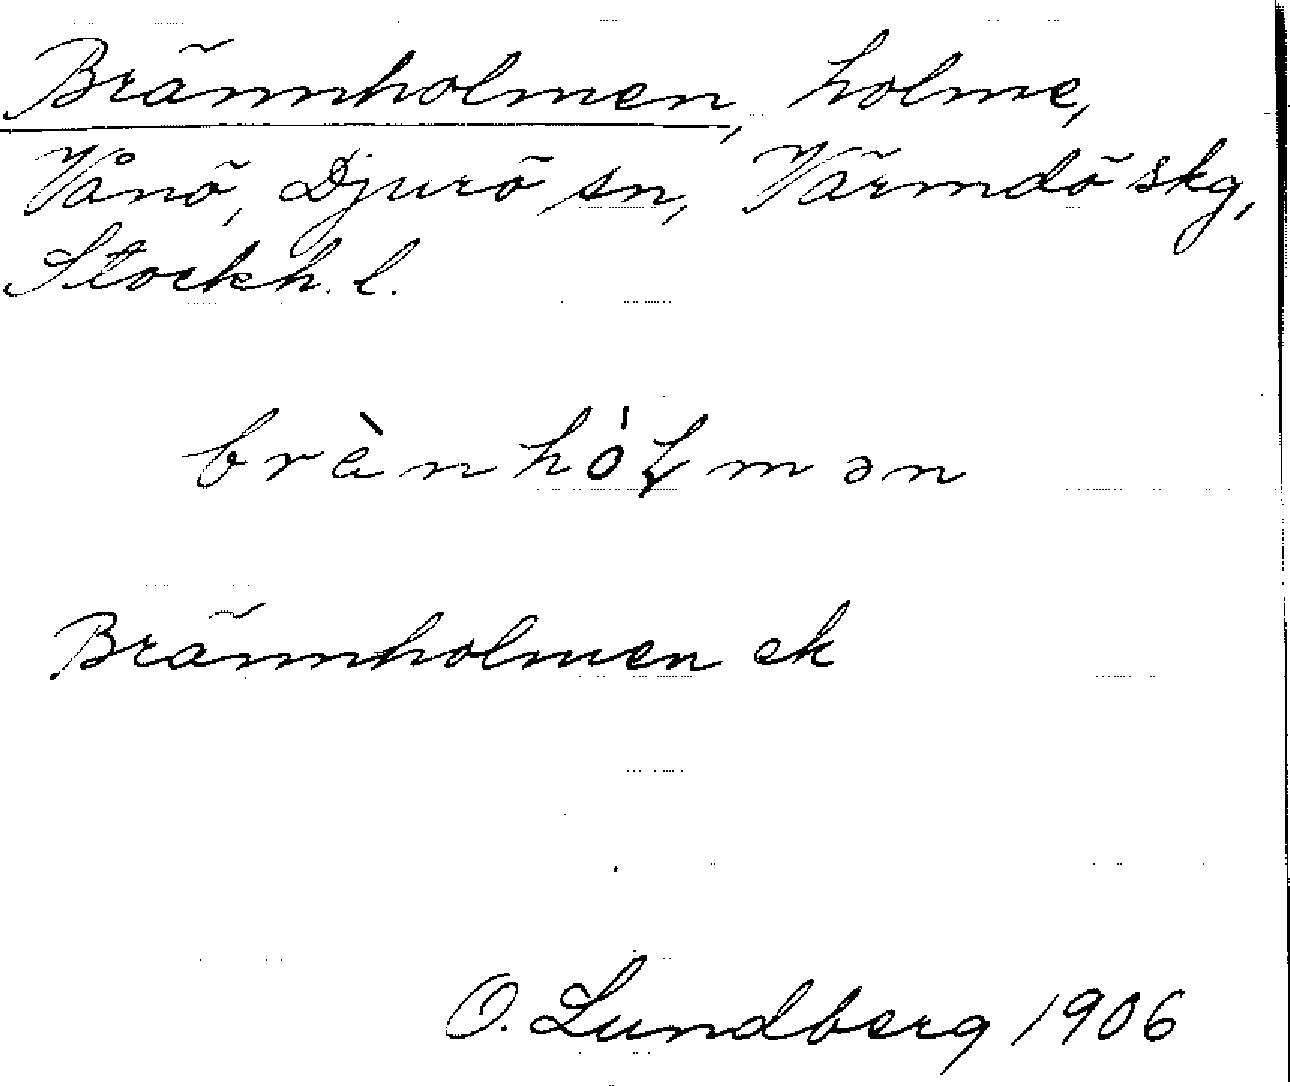 Brännholmen, holme,
Vånö, Djurö sn, Värmdö skg,
Stockh. l.
brènhóɫmən
Brännholmen ek
O. Lundberg 1906